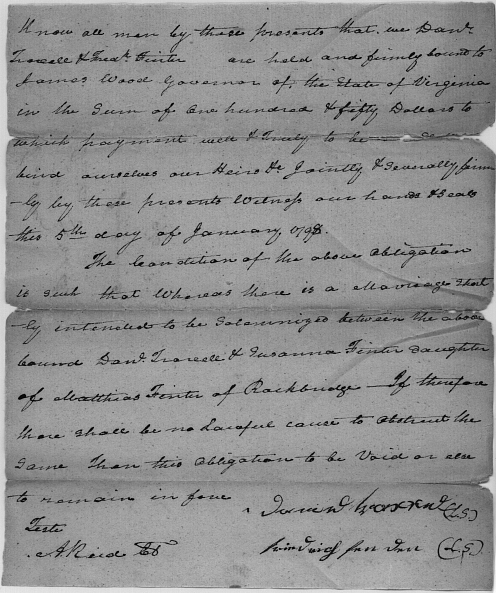 Know all men by these presents that we Danl.
Trovell & Fredk. Finter are held and firmly bound to
James Wood Governor of the State of Virginia
in the Sum of One hundred & fifty Dollars to
which payment well & Truly to be
bind ourselves our Heirs &c Jointly & Severally firm
-ly by these presents Witness our hands & Seals
this 5th day of January 1798.
The Condition of the above Obligation
is such that Whereas there is a Marriage Short
-ly intended to be Solemnized between the above
bound Danl. Trovell & Susanna Finter daughter
of Matthias Finter of Rockbridge — If therefore
there shall be no Lawful cause to Obstruct the
Same Then this Obligation to be Void or else
to remain in force
Teste
A Reid
(L.S)
friedrich (L.S.)